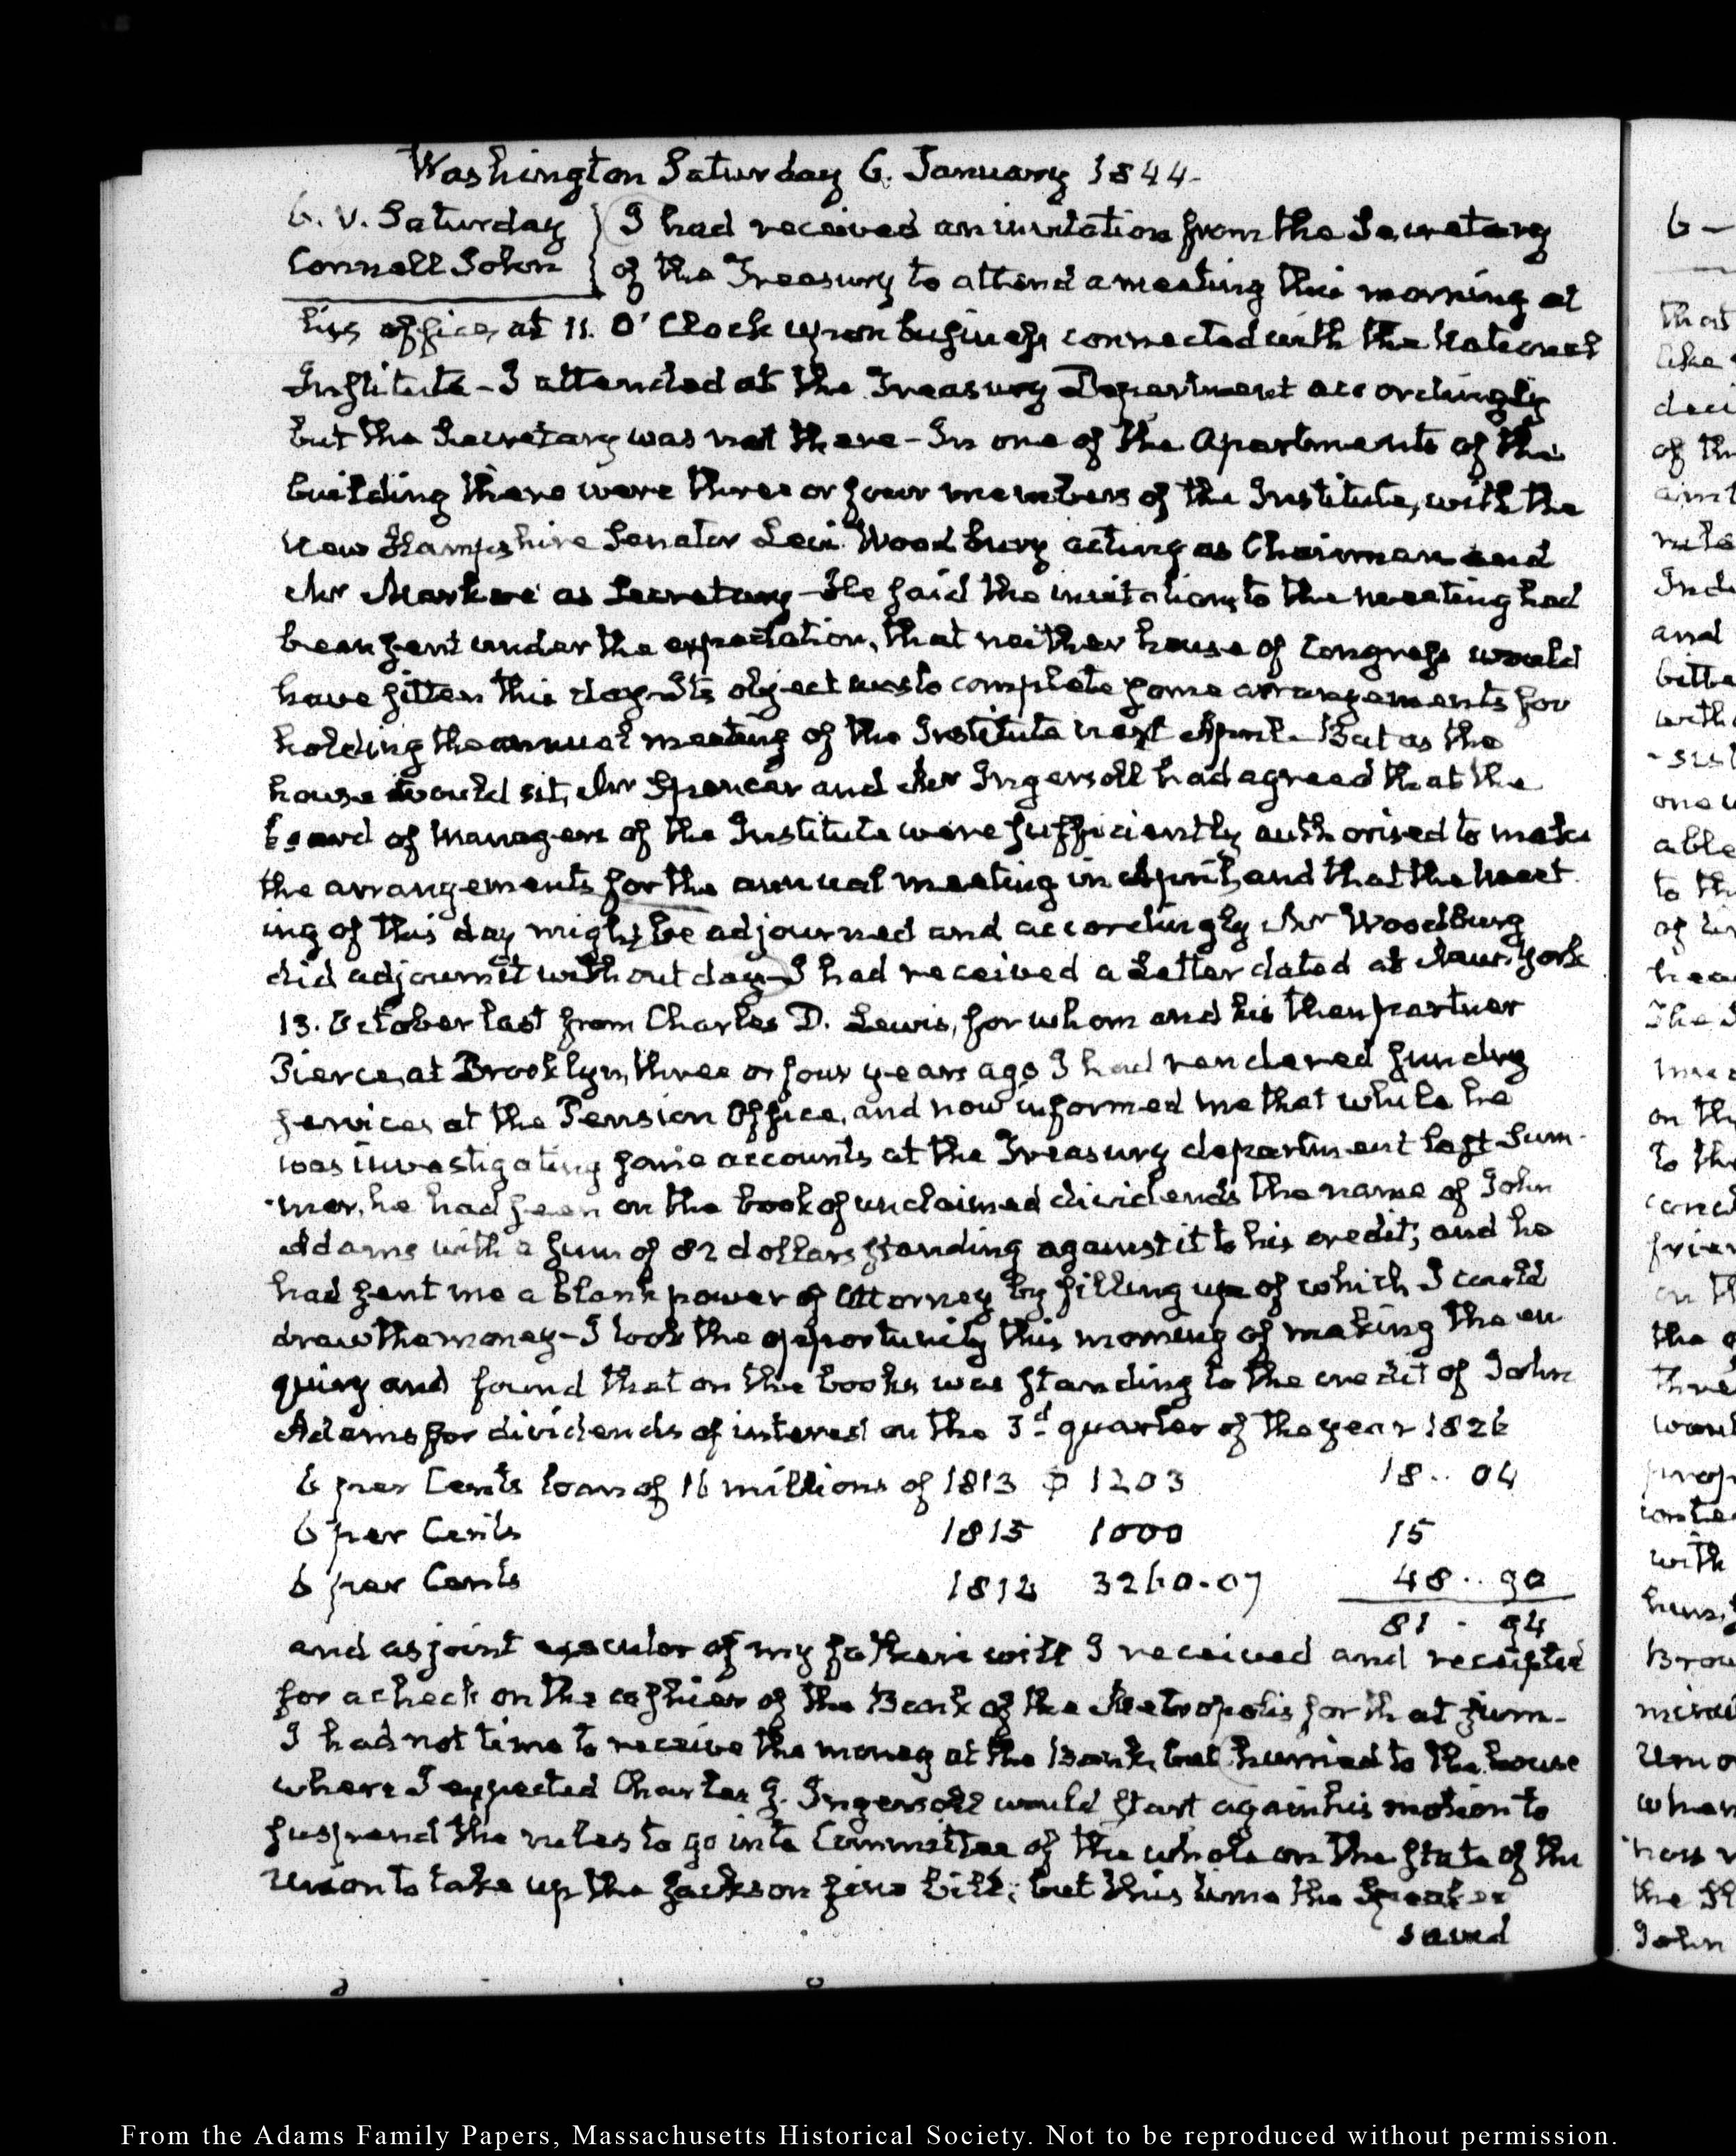 Washington Saturday 6. January 1844-
6. V. Saturday
Connell John
I had received an invitation from the Secretary
of the Treasury to attend a meeting this morning at
his office, at 11. O'Clock upon business connected with the National
Institute - I attended at the Treasury Department accordingly
but the Secretary was not there - In one of the Apartments of the
building there were three or four members of the Institute, with the
New Hampshire Senator Levi Woodbury acting as Chairman and
Mr Markoe as Secretary - He said the invitations to the meeting had
been sent under the expectation, that neither house of Congress would
have sitten this day - Its object was to complete some arrangements for
holding the annual meeting of the Institute next April - But as the
house would sit, Mr Spencer and Mr Ingersoll had agreed that the
board of Managers of the Institute were sufficiently authorised to make
the arrangements for the annual meeting in April, and that the meet
ing of this day might be adjourned and accordingly Mr Woodbury
did adjourn it without day - I had received a Letter dated at New-York
13. October last from Charles D. Lewis, for whom and his then partner
Pierce, at Brooklyn, three or four years ago I had rendered sundry
services at the Pension Office, and now informed me that while he
was investigating some accounts at the Treasury department last Sum-
-mer, he had seen on the book of unclaimed dividends the name of John
Adams with a sum of 82 dollars standing against it to his credit; and he
had sent me a blank power of Attorney by filling up of which I could
draw the money - I took the opportunity this morning of making the en
quiry and found that on the books was standing to the credit of John
Adams for dividends of interest on the 3d quarter of the year 1826
6 per Cents loan of 16 millions of 1813 $ 1203 18.. 04
6 per Cents 1815 1000 15
6 per Cents 1812 3260-07 48.. 90
81 - 94
and as joint executor of my father's will I received and receipted
for a check on the cashier of the Bank of the Metropolis for that sum-
I had not time to receive the money at the Bank, but hurried to the house
where I expected Charles J. Ingersoll would start again his motion to
suspend the rules to go into Committee of the whole on the state of the
Union to take up the Jackson fine bill; but this time the Speaker
saved
6-
From the Adams Family Papers, Massachusetts Historical Society. Not to be reproduced without permission.